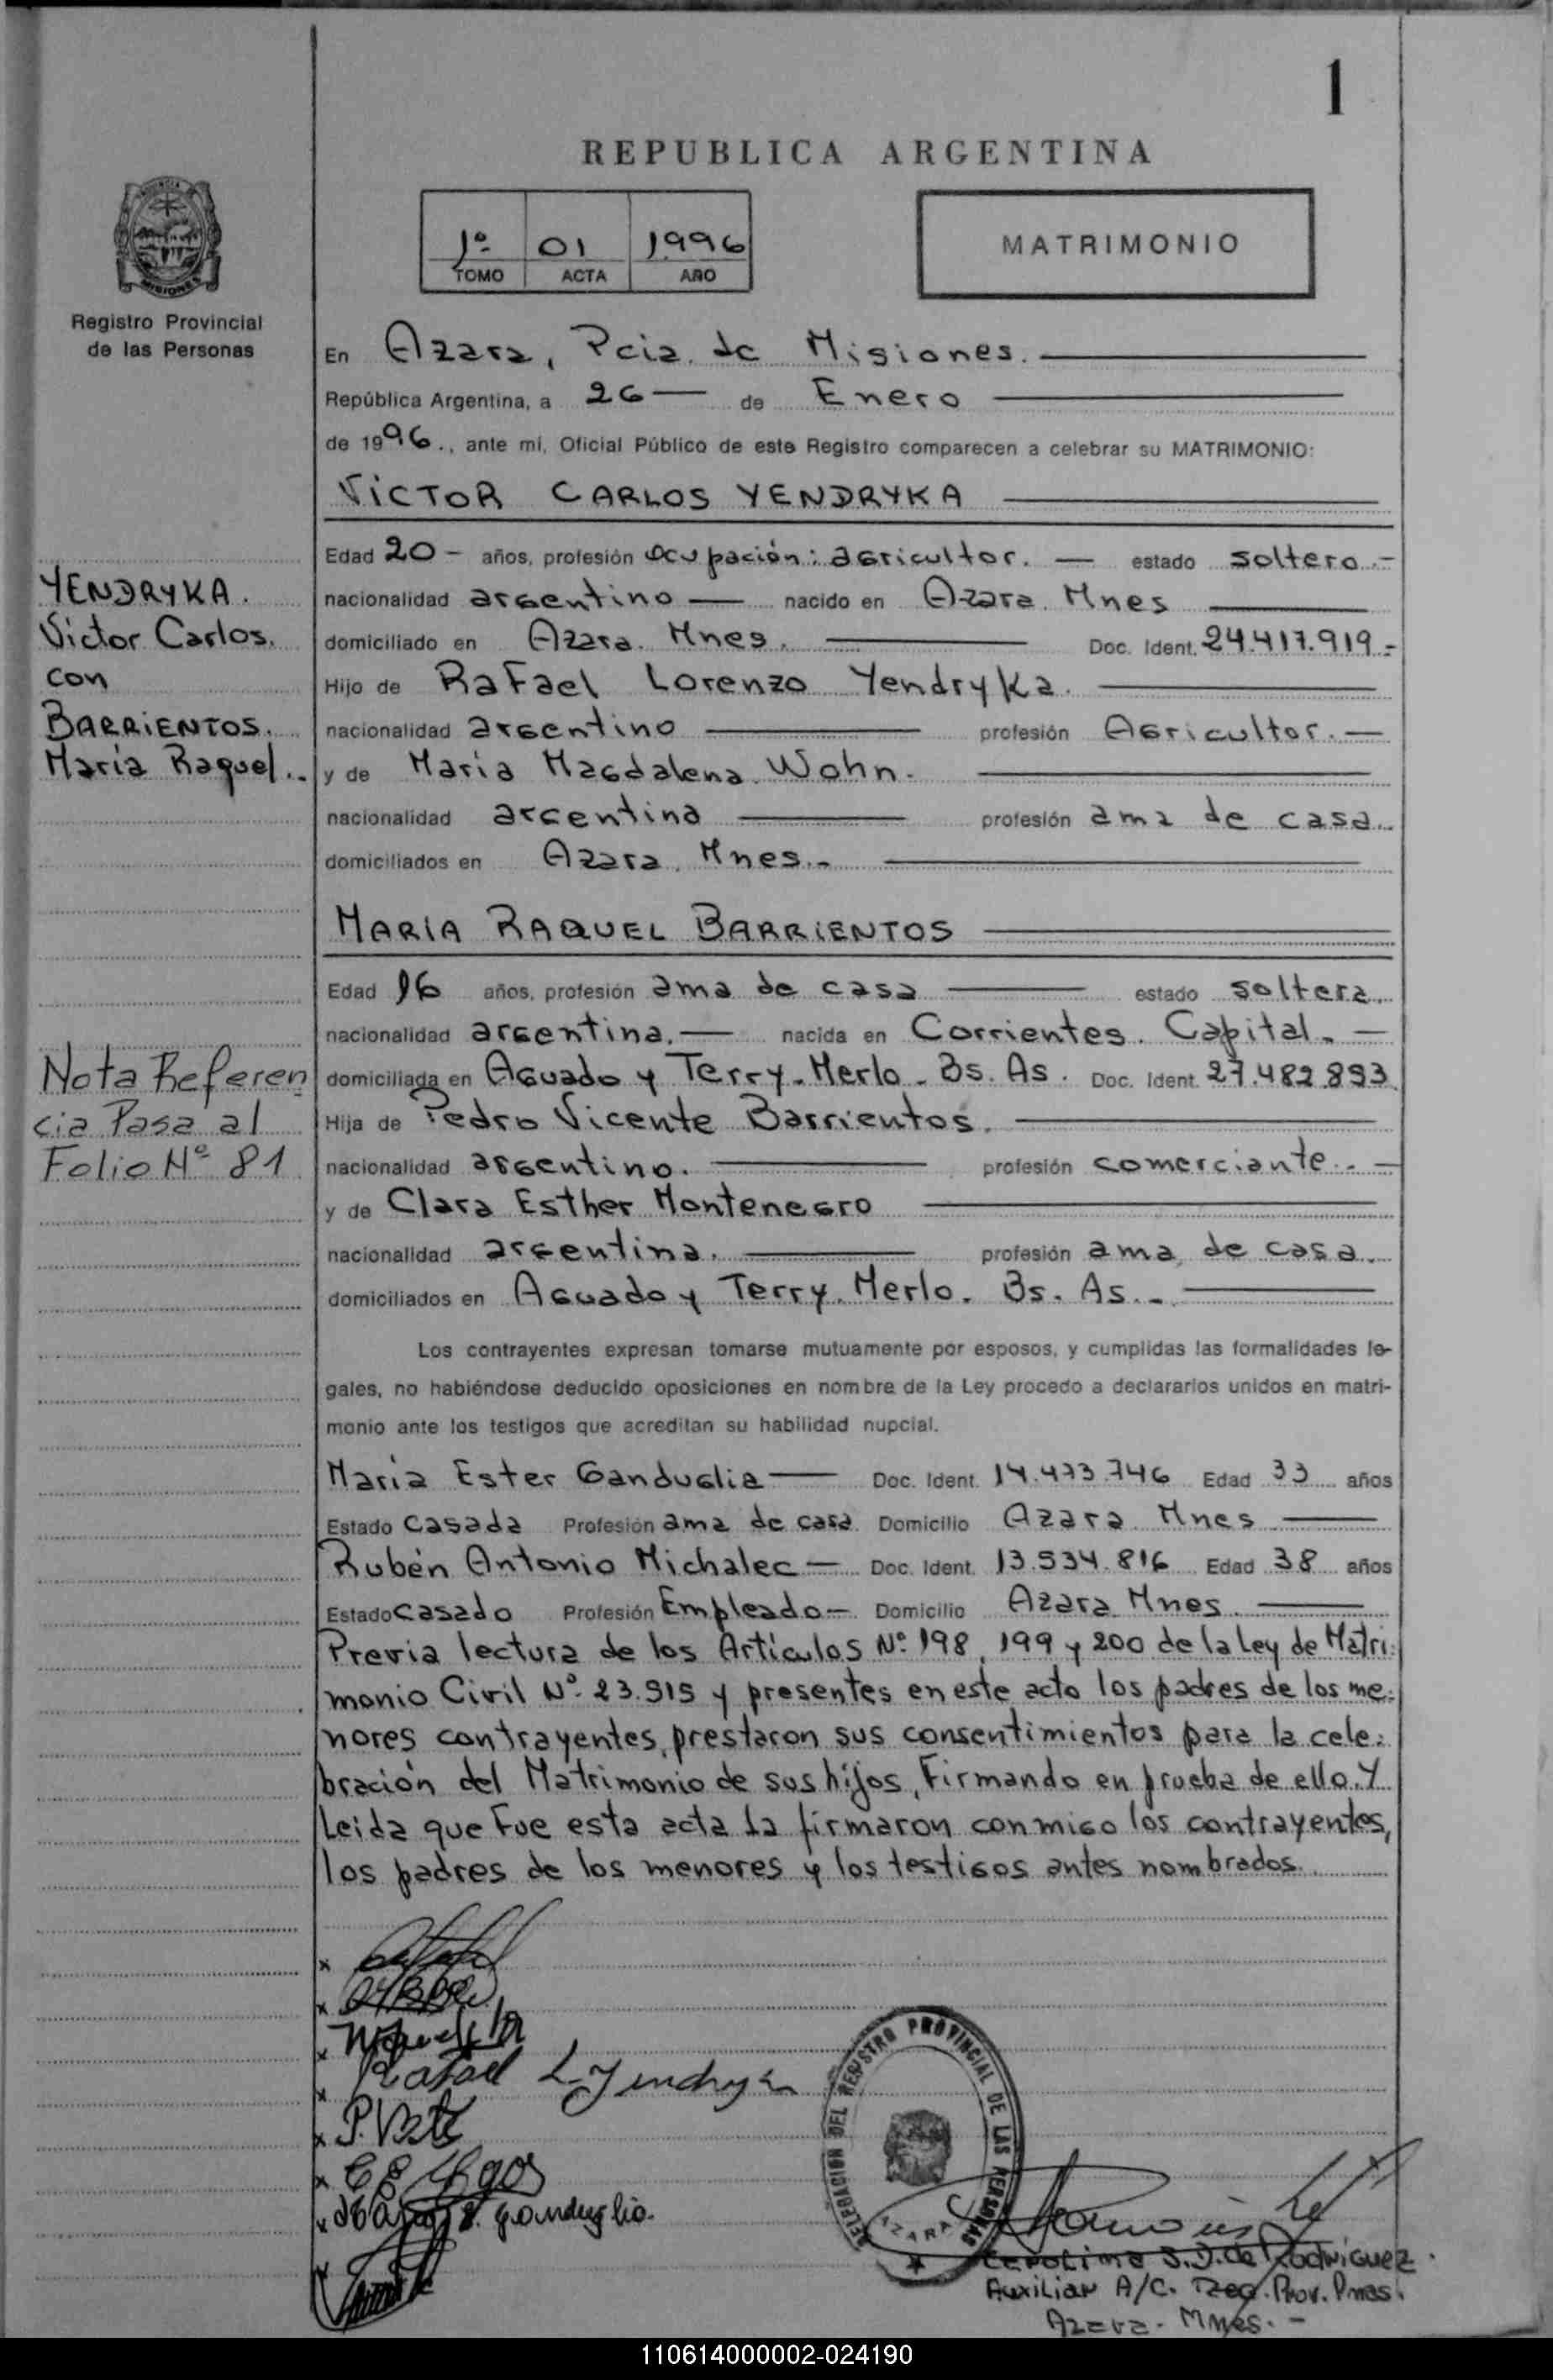 1
REPUBLICA ARGENTINA
1º 01 1996
TOMO ACTA AÑO
MATRIMONIO
MISIONES
Registro Provincial
de las Personas
En Azara, Pcia. de Misiones.
República Argentina, a 26 de Enero
de 1996., ante mí, Oficial Público de este Registro comparecen a celebrar su MATRIMONIO:
VICTOR CARLOS YENDRYKA
Edad 20 - años, profesión Ocupación: agricultor. — estado soltero.-
nacionalidad argentino — nacido en Azara. Mnes
domiciliado en Azara. Mnes. Doc. Ident. 24.417.919.-
Hijo de Rafael Lorenzo Yendryka.
nacionalidad argentino profesión Agricultor. —
y de María Magdalena Wohn.
nacionalidad argentina profesión ama de casa.
domiciliados en Azara, Mnes.-
MARIA RAQUEL BARRIENTOS
Edad 16 años, profesión ama de casa estado soltera.
nacionalidad argentina. — nacida en Corrientes. Capital. —
domiciliada en Aguado y Terry. Merlo. Bs. As. Doc. Ident. 27.482.893
Hija de Pedro Vicente Barrientos.
nacionalidad argentino. profesión comerciante. -
y de Clara Esther Montenegro
nacionalidad argentina. profesión ama de casa.
domiciliados en Aguado y Terry. Merlo. Bs. As. -
Los contrayentes expresan tomarse mutuamente por esposos, y cumplidas las formalidades le-
gales, no habiéndose deducido oposiciones en nombre de la Ley procedo a declararlos unidos en matri-
monio ante los testigos que acreditan su habilidad nupcial.
María Ester Ganduglia — Doc. Ident. 14.473.746 Edad 33 años
Estado Casada Profesión ama de casa Domicilio Azara Mnes
Rubén Antonio Michalec — Doc. Ident. 13.534.816 Edad 38 años
Estado casado Profesión Empleado — Domicilio Azara Mnes.
Previa lectura de los Artículos Nº 198, 199 y 200 de la Ley de Matri-
monio Civil Nº 23.515 y presentes en este acto los padres de los me-
nores contrayentes, prestaron sus consentimientos para la cele-
bración del Matrimonio de sus hijos, Firmando en prueba de ello. Y
Leida que Fue esta acta la firmaron conmigo los contrayentes,
los padres de los menores y los testigos antes nombrados.
YENDRYKA.
Victor Carlos.
con
BARRIENTOS.
María Raquel.
Nota Referen
cia Pasa al
Folio Nº 81
Rafael L. Yendryka
ganduglia.
DELEGACION DEL REGISTRO PROVINCIAL DE LAS PERSONAS
AZARA
S. D. de Rodriguez.
Auxiliar A/C. Reg. Prov. Pnas.
Azara - Mnes. -
110614000002-024190